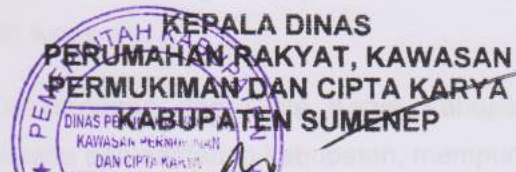 KEPALA DINAS
PERUMAHAN RAKYAT, KAWASAN
PERMUKIMAN DAN CIPTA KARYA
KABUPATEN SUMENEP
DINAS
KAWASAN PERMUKIMAN
DAN CIPTA KARYA